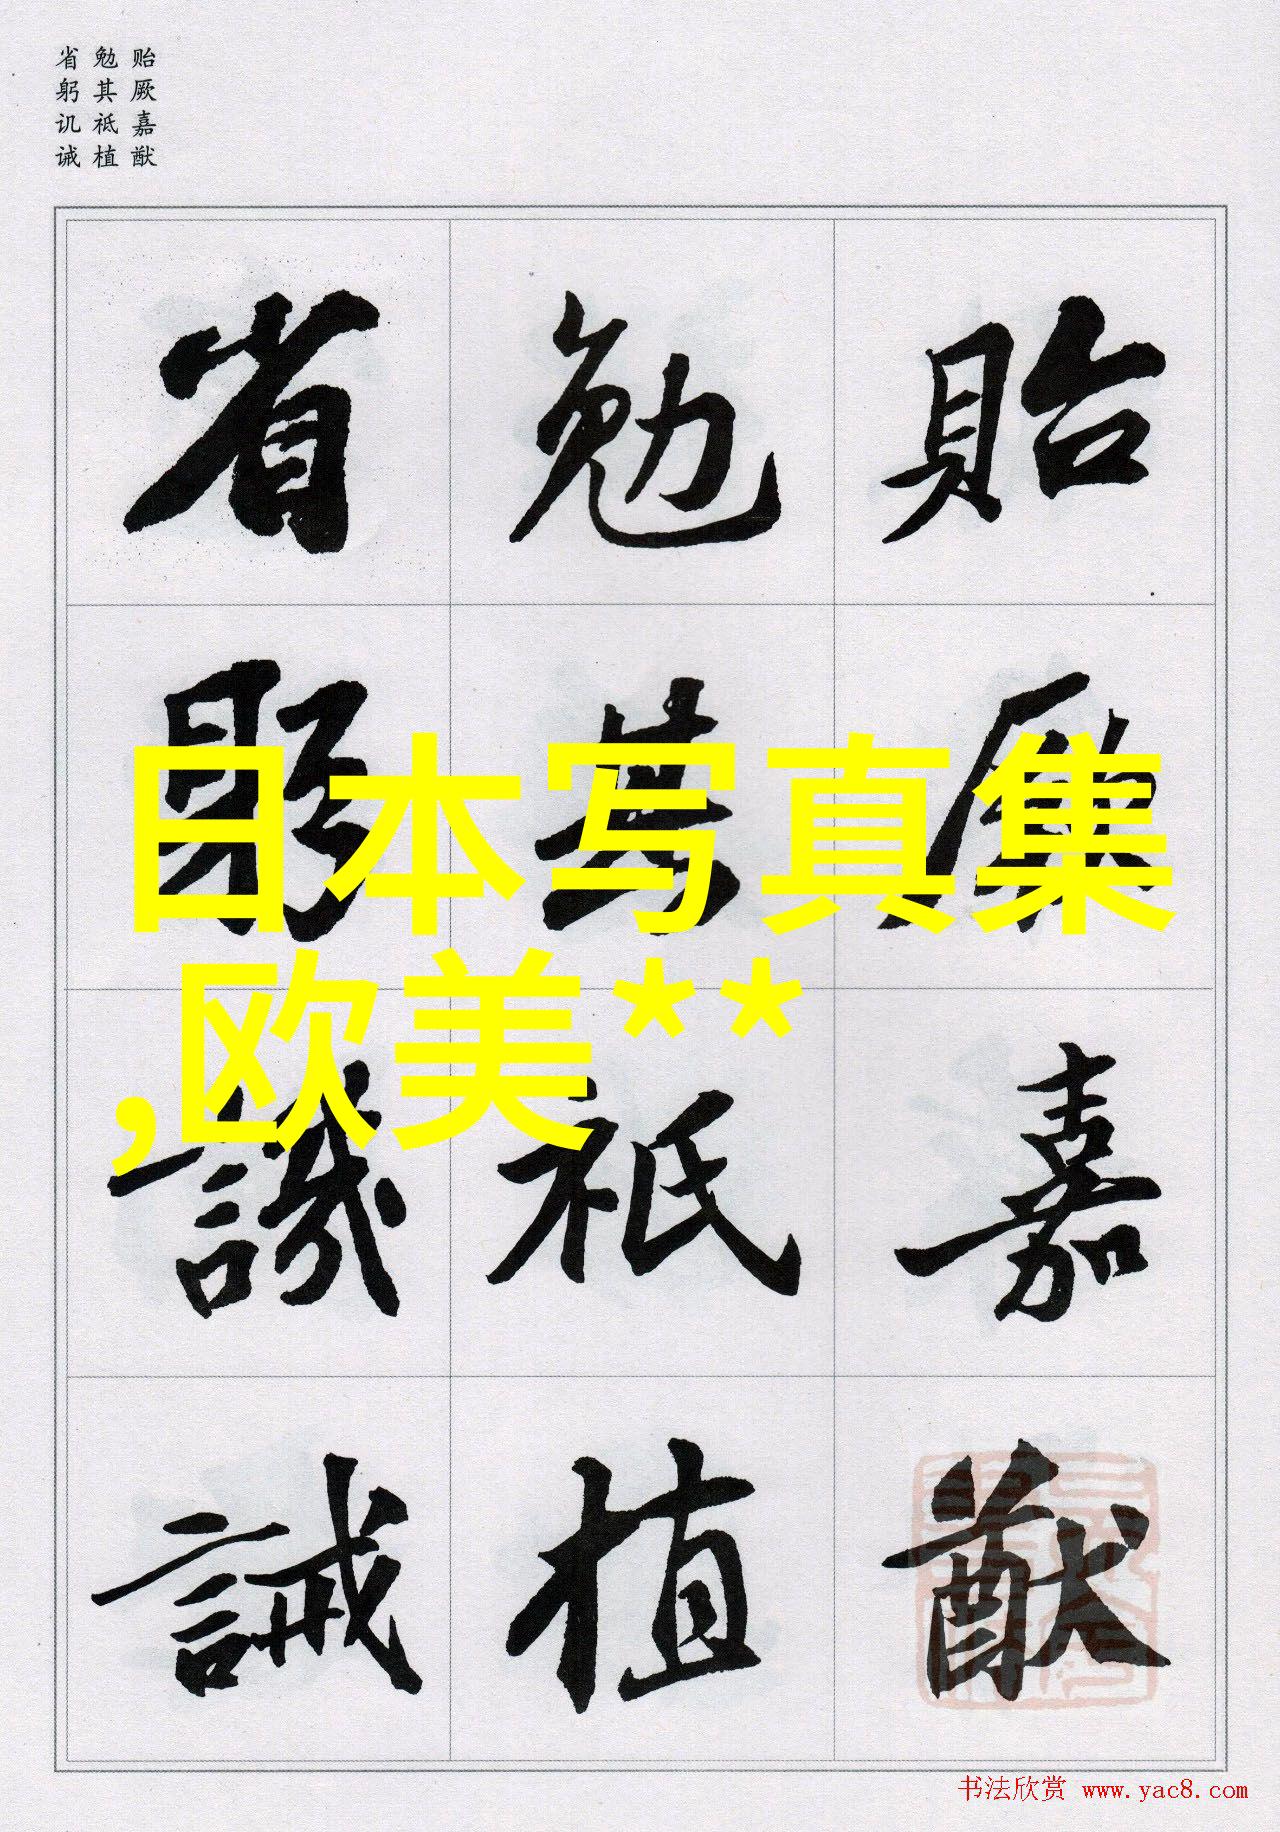 贻厥嘉猷
勉其祗植
省躬讥诫
貽厥嘉猷
勉其祗植
省躬譏誡
日本写真集
,欧美**
书法欣赏 www.yac8.com